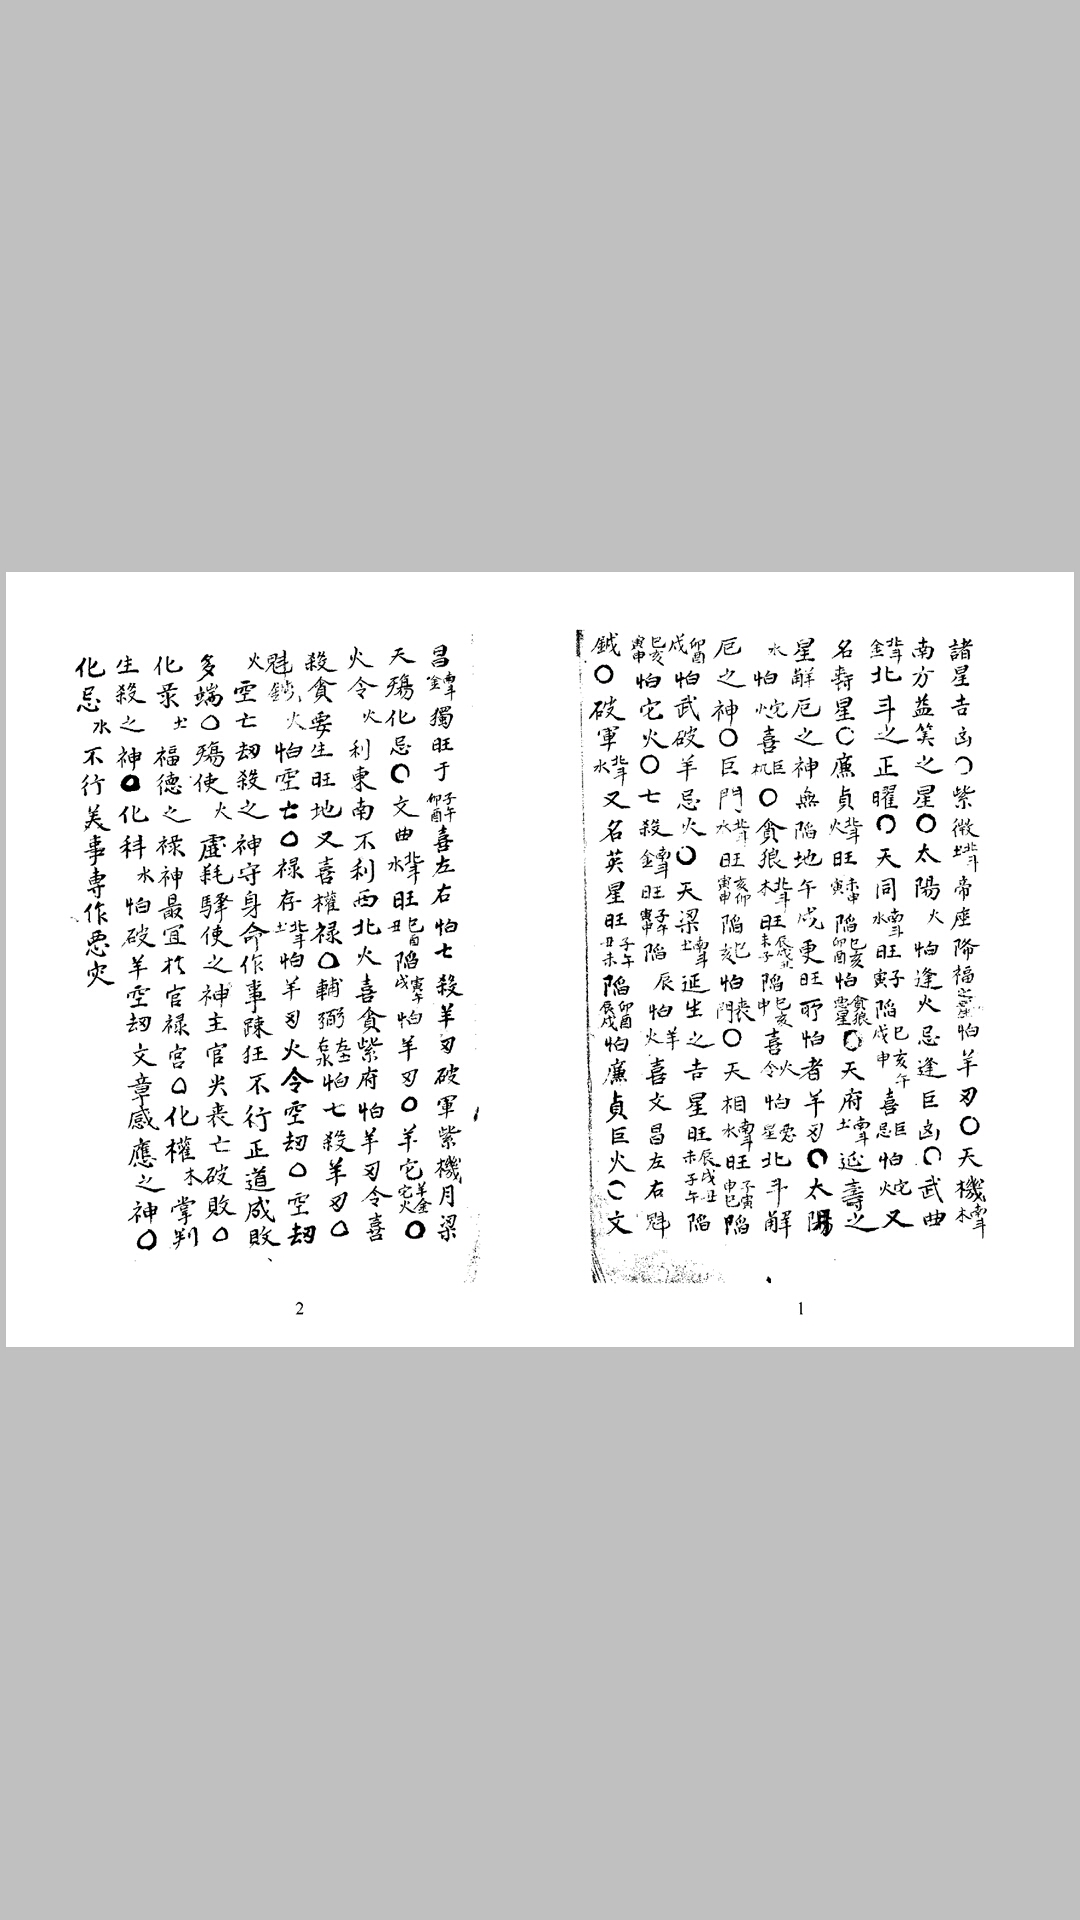 諸星吉凶○紫微北斗土帝座降福之星怕羊刃○天機南斗木
南方益算之星○太陽火怕逢火忌逢巨凶○武曲
北斗金北斗之正曜○天同南斗水旺子寅陷巳亥午戌申喜巨忌怕火陀又
名壽星○廉貞北斗火旺未申寅陷巳亥卯酉怕貪狼惡星○天府南斗土延壽之
星解厄之神無陷地午戌更旺所怕者羊刃○太陽
水怕火陀喜巨机○貪狼北斗木旺辰戌丑未子陷巳亥申喜火令怕惡星北斗解
厄之神○巨門北斗水旺亥卯寅申陷巳亥怕喪門○天相南斗水旺子寅申巳陷
卯酉戌怕武破羊忌火○天梁南斗土延生之吉星旺辰戌丑未子午陷
巳亥寅申怕它火○七殺南斗金旺子午寅申陷辰怕羊火喜文昌左右魁
鉞○破軍北斗水又名英星旺子午丑未陷卯酉辰戌怕廉貞巨火○文
昌南斗金獨旺于子午卯酉喜左右怕七殺羊刃破軍紫機月梁
天殤化忌○文曲北斗水旺巳酉丑陷寅午戌怕羊刃○羊它羊金它火○
火令火利東南不利西北火喜貪紫府怕羊刃令喜
殺貪要生旺地又喜權祿○輔弼左土右水怕七殺羊刃○
魁鉞火怕空亡○祿存北斗土怕羊刃火令空劫○空劫
火空亡劫殺之神守身命作事疎狂不行正道成敗
多端○殤使火虛耗驛使之神主官灾喪亡破敗○
化彔土福德之祿神最宜於官祿宮○化權木掌判
生殺之神○化科水怕破羊空劫文章感應之神○
化忌水不行美事專作惡灾
2
1